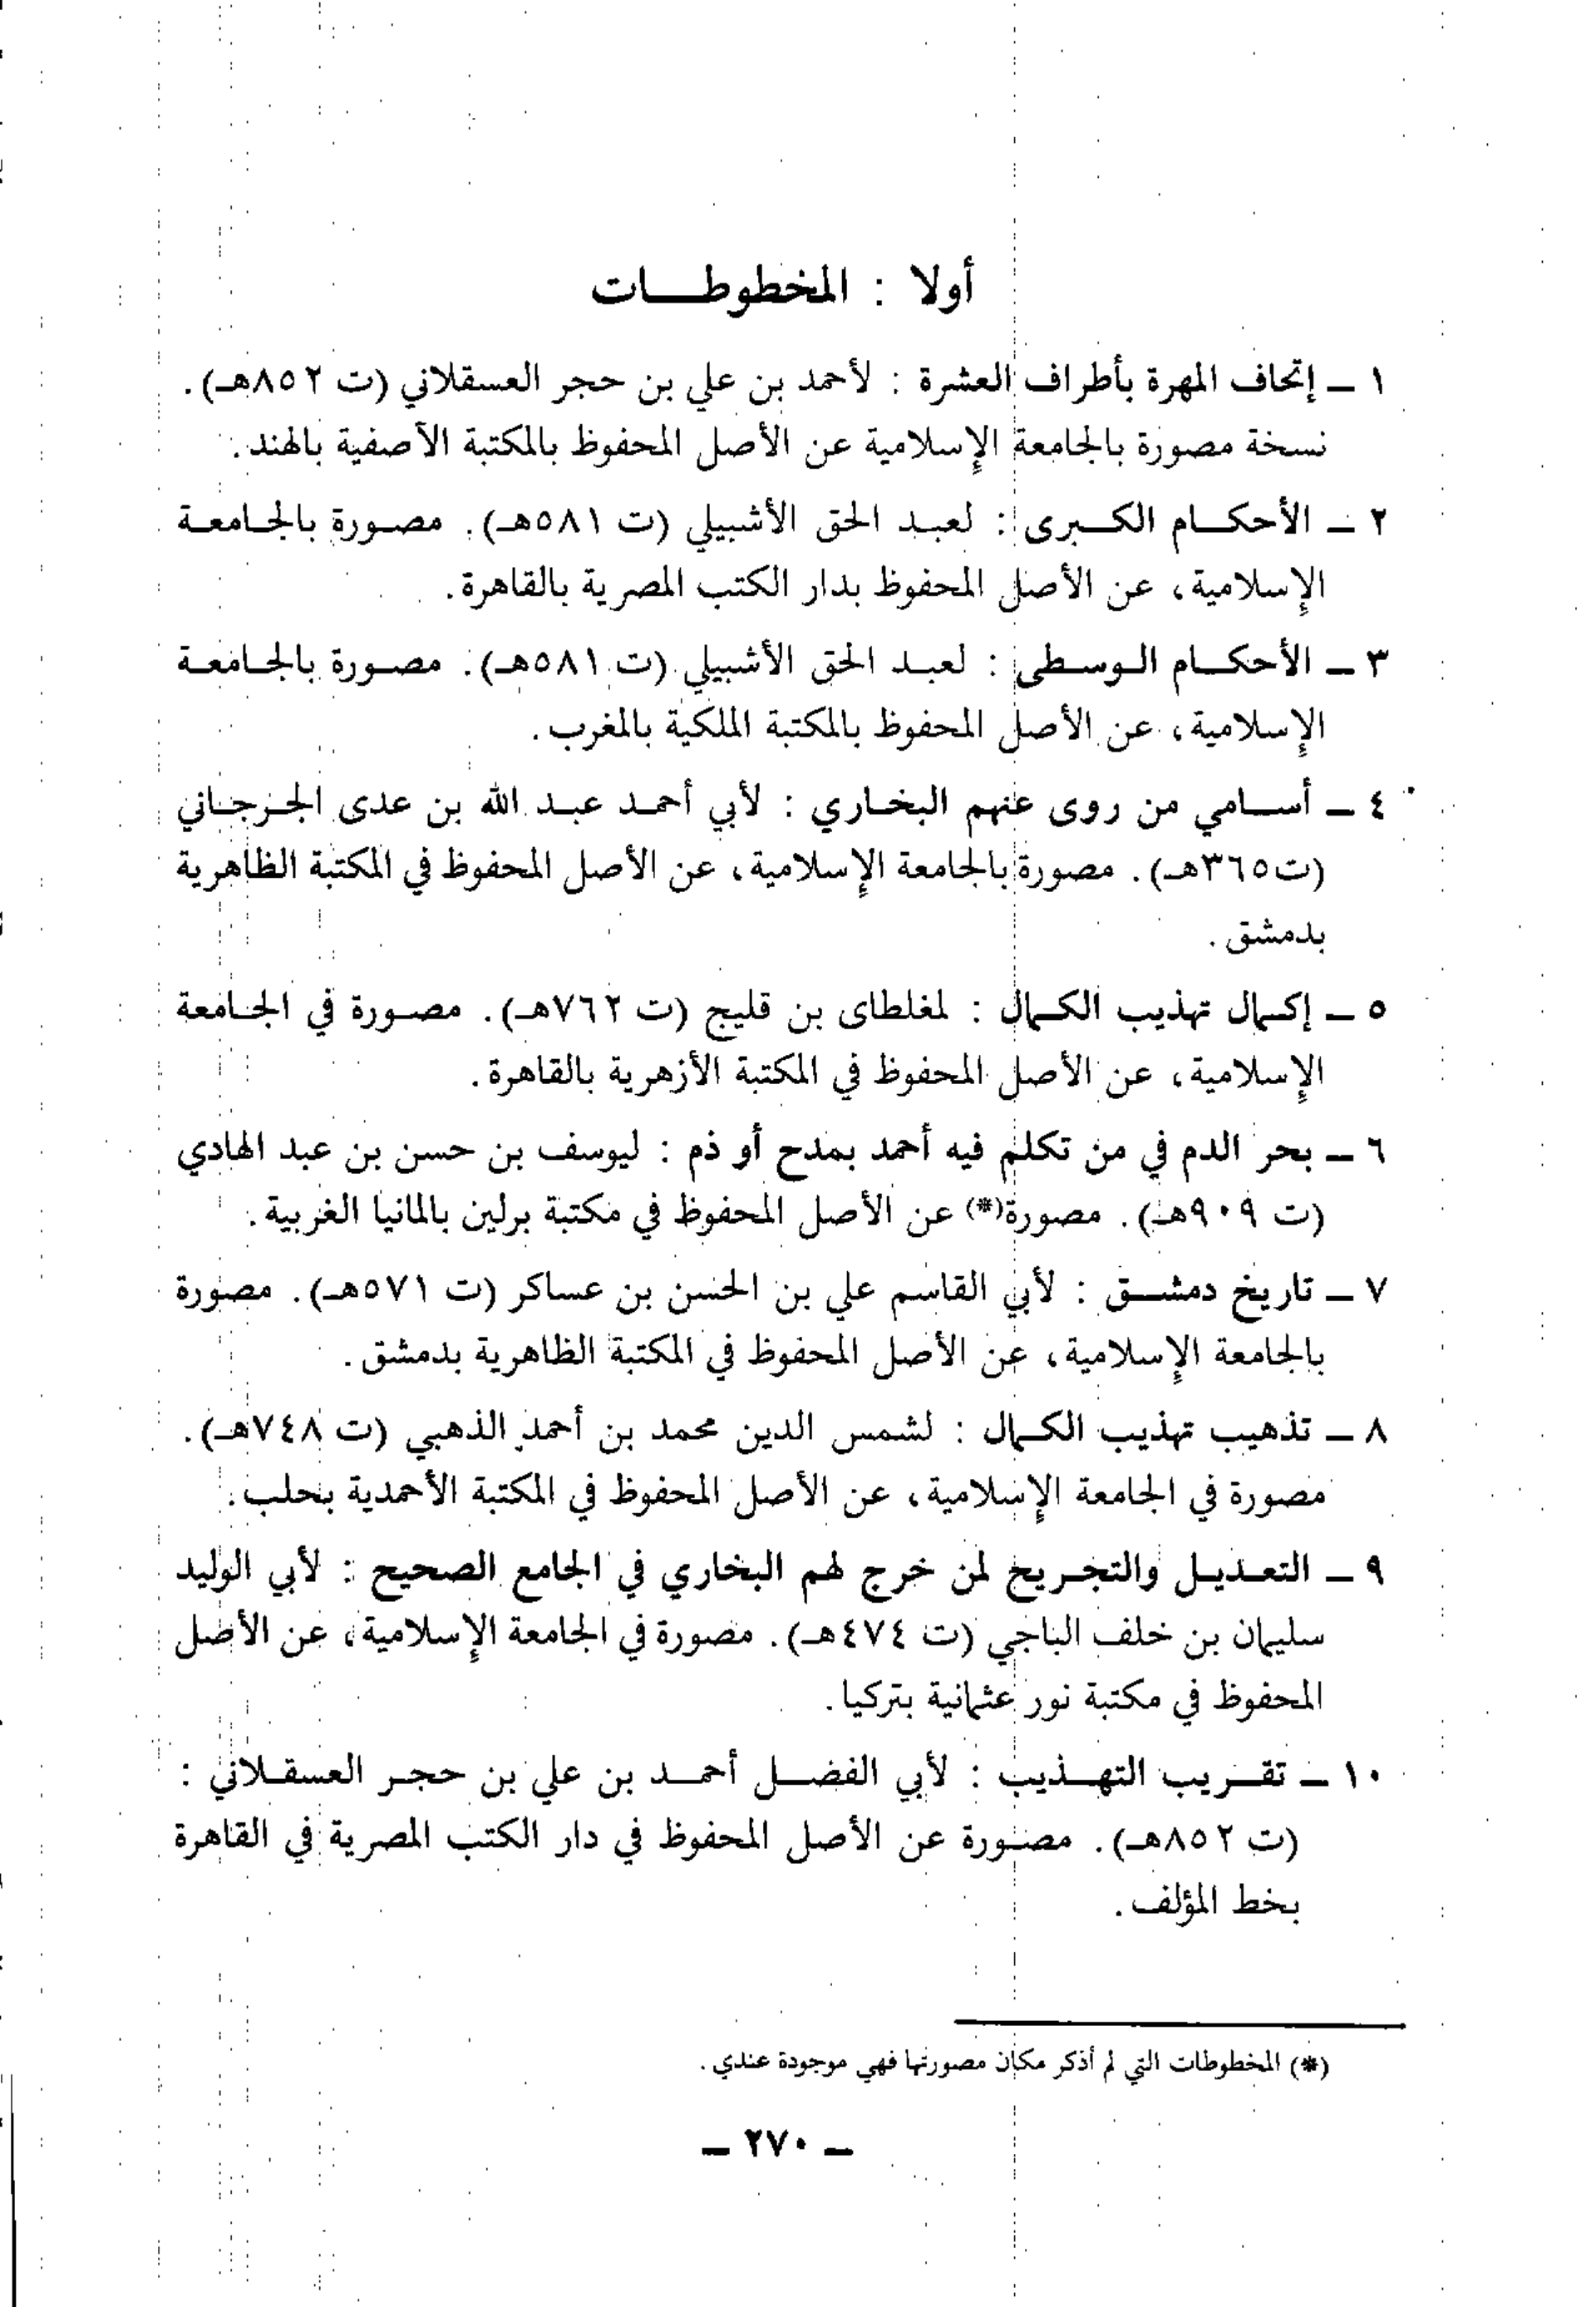 أولا : المخطوطات
١ ـ إتحاف المهرة بأطراف العشرة : لأحمد بن علي بن حجر العسقلاني (ت ٨٥٢هـ).
نسخة مصورة بالجامعة الإسلامية عن الأصل المحفوظ بالمكتبة الآصفية بالهند.
٢ ـ الأحكام الكبرى : لعبد الحق الأشبيلي (ت ٥٨١هـ). مصورة بالجامعة
الإسلامية، عن الأصل المحفوظ بدار الكتب المصرية بالقاهرة.
٣ ـ الأحكام الوسطى : لعبد الحق الأشبيلي (ت ٥٨١هـ). مصورة بالجامعة
الإسلامية، عن الأصل المحفوظ بالمكتبة الملكية بالمغرب.
٤ ـ أسامي من روى عنهم البخاري : لأبي أحمد عبد الله بن عدى الجرجاني
(ت٣٦٥هـ). مصورة بالجامعة الإسلامية، عن الأصل المحفوظ في المكتبة الظاهرية
بدمشق.
٥ ـ إكمال تهذيب الكمال : لمغلطاى بن قليج (ت ٧٦٢هـ). مصورة في الجامعة
الإسلامية، عن الأصل المحفوظ في المكتبة الأزهرية بالقاهرة.
٦ ـ بحر الدم في من تكلم فيه أحمد بمدح أو ذم : ليوسف بن حسن بن عبد الهادي
(ت ٩٠٩هـ). مصورة(*) عن الأصل المحفوظ في مكتبة برلين بالمانيا الغربية.
٧ ـ تاريخ دمشق : لأبي القاسم علي بن الحسن بن عساكر (ت ٥٧١هـ). مصورة
بالجامعة الإسلامية، عن الأصل المحفوظ في المكتبة الظاهرية بدمشق.
٨ ـ تذهيب تهذيب الكمال : لشمس الدين محمد بن أحمد الذهبي (ت ٧٤٨هـ).
مصورة في الجامعة الإسلامية، عن الأصل المحفوظ في المكتبة الأحمدية بحلب.
٩ ـ التعديل والتجريح لمن خرج لهم البخاري في الجامع الصحيح : لأبي الوليد
سليمان بن خلف الباجي (ت ٤٧٤هـ). مصورة في الجامعة الإسلامية، عن الأصل
المحفوظ في مكتبة نور عثمانية بتركيا.
١٠ ـ تقريب التهذيب : لأبي الفضل أحمد بن علي بن حجر العسقلاني :
(ت ٨٥٢هـ). مصورة عن الأصل المحفوظ في دار الكتب المصرية في القاهرة
بخط المؤلف.
(*) المخطوطات التي لم أذكر مكان مصورتها فهي موجودة عندي.
ـ ٢٧٠ ـ